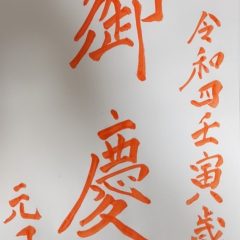 令和四壬寅八歳
御慶
元